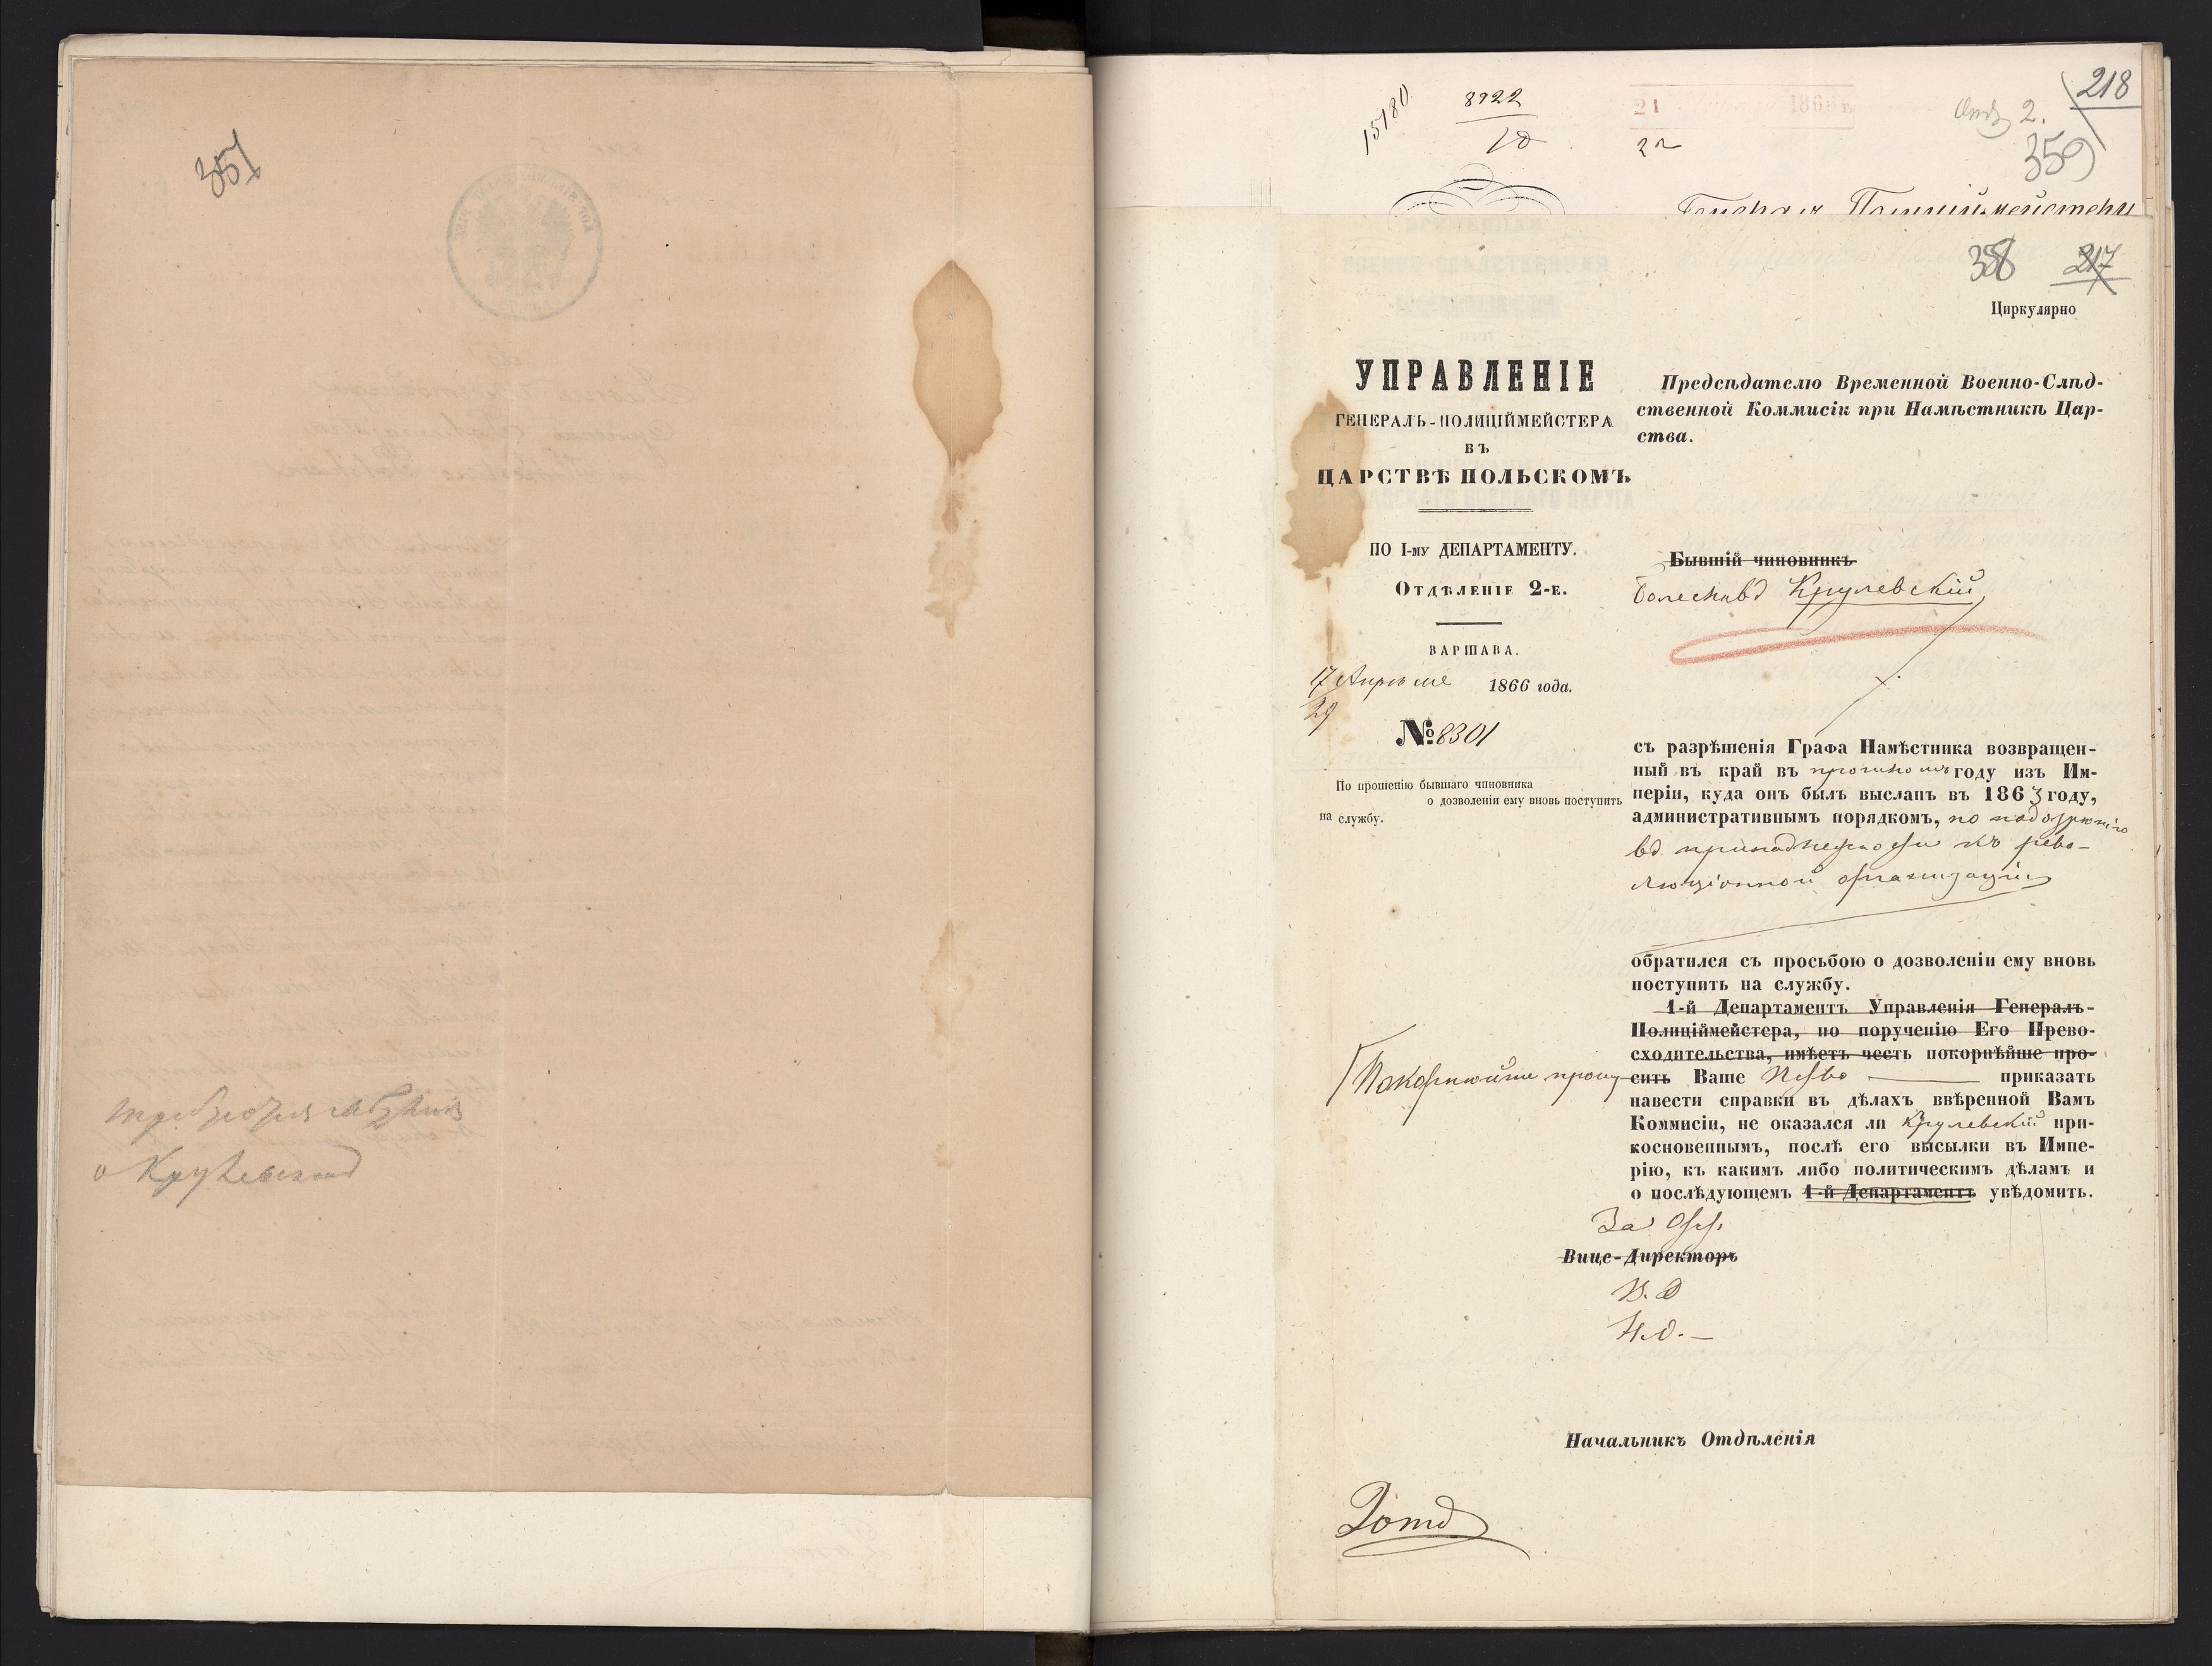 351
о Крулевском
15180
8922
10
21 186
22
Отд 2.
218
359
Генерал Полиціймейстеръ
358 217
Циркулярно
УПРАВЛЕНІЕ
ГЕНЕРАЛЪ-ПОЛИЦІЙМЕЙСТЕРА
ВЪ
ЦАРСТВѢ ПОЛЬСКОМЪ
ПО I-му ДЕПАРТАМЕНТУ.
Отдѣленіе 2-е.
ВАРШАВА.
17 Апрѣля 1866 года.
29
№ 8301
По прошенію бывшаго чиновника
о дозволеніи ему вновь поступить
на службу.
Предсѣдателю Временной Военно-Слѣд-
ственной Коммисіи при Намѣстникѣ Цар-
ства.
Бывшій чиновникъ
Болеславъ Крулевскій,
съ разрѣшенія Графа Намѣстника возвращен-
ный въ край въ прошломъ году изъ Им-
періи, куда онъ былъ высланъ въ 1863 году,
административнымъ порядкомъ, по подозрѣнію
въ принадлежности къ рево-
люціонной организаціи
обратился съ просьбою о дозволеніи ему вновь
поступить на службу.
1-й Департаментъ Управленія Генералъ-
Полиціймейстера, по порученію Его Прево-
сходительства, имѣетъ честь покорнѣйше про-
Покорнѣйше прошу сить Ваше Прево приказать
навести справки въ дѣлахъ ввѣренной Вамъ
Коммисіи, не оказался ли Крулевскій при-
косновеннымъ, послѣ его высылки въ Импе-
рію, къ какимъ либо политическимъ дѣламъ и
о послѣдующемъ 1-й Департаментъ увѣдомить.
За
Вице-Директоръ
В. Д
Н.О.
Начальникъ Отдѣленія